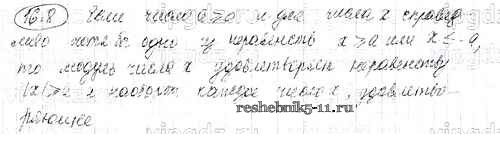 16.8 Если число a>0 и для числа x справед
ливо хотя бы одно из неравенств x⩾a или x⩽-a,
то модуль числа x удовлетворяет неравенству
|x|⩾a и наоборот каждое число x, удовлетво-
ряющее
reshebnik5-11.ru/